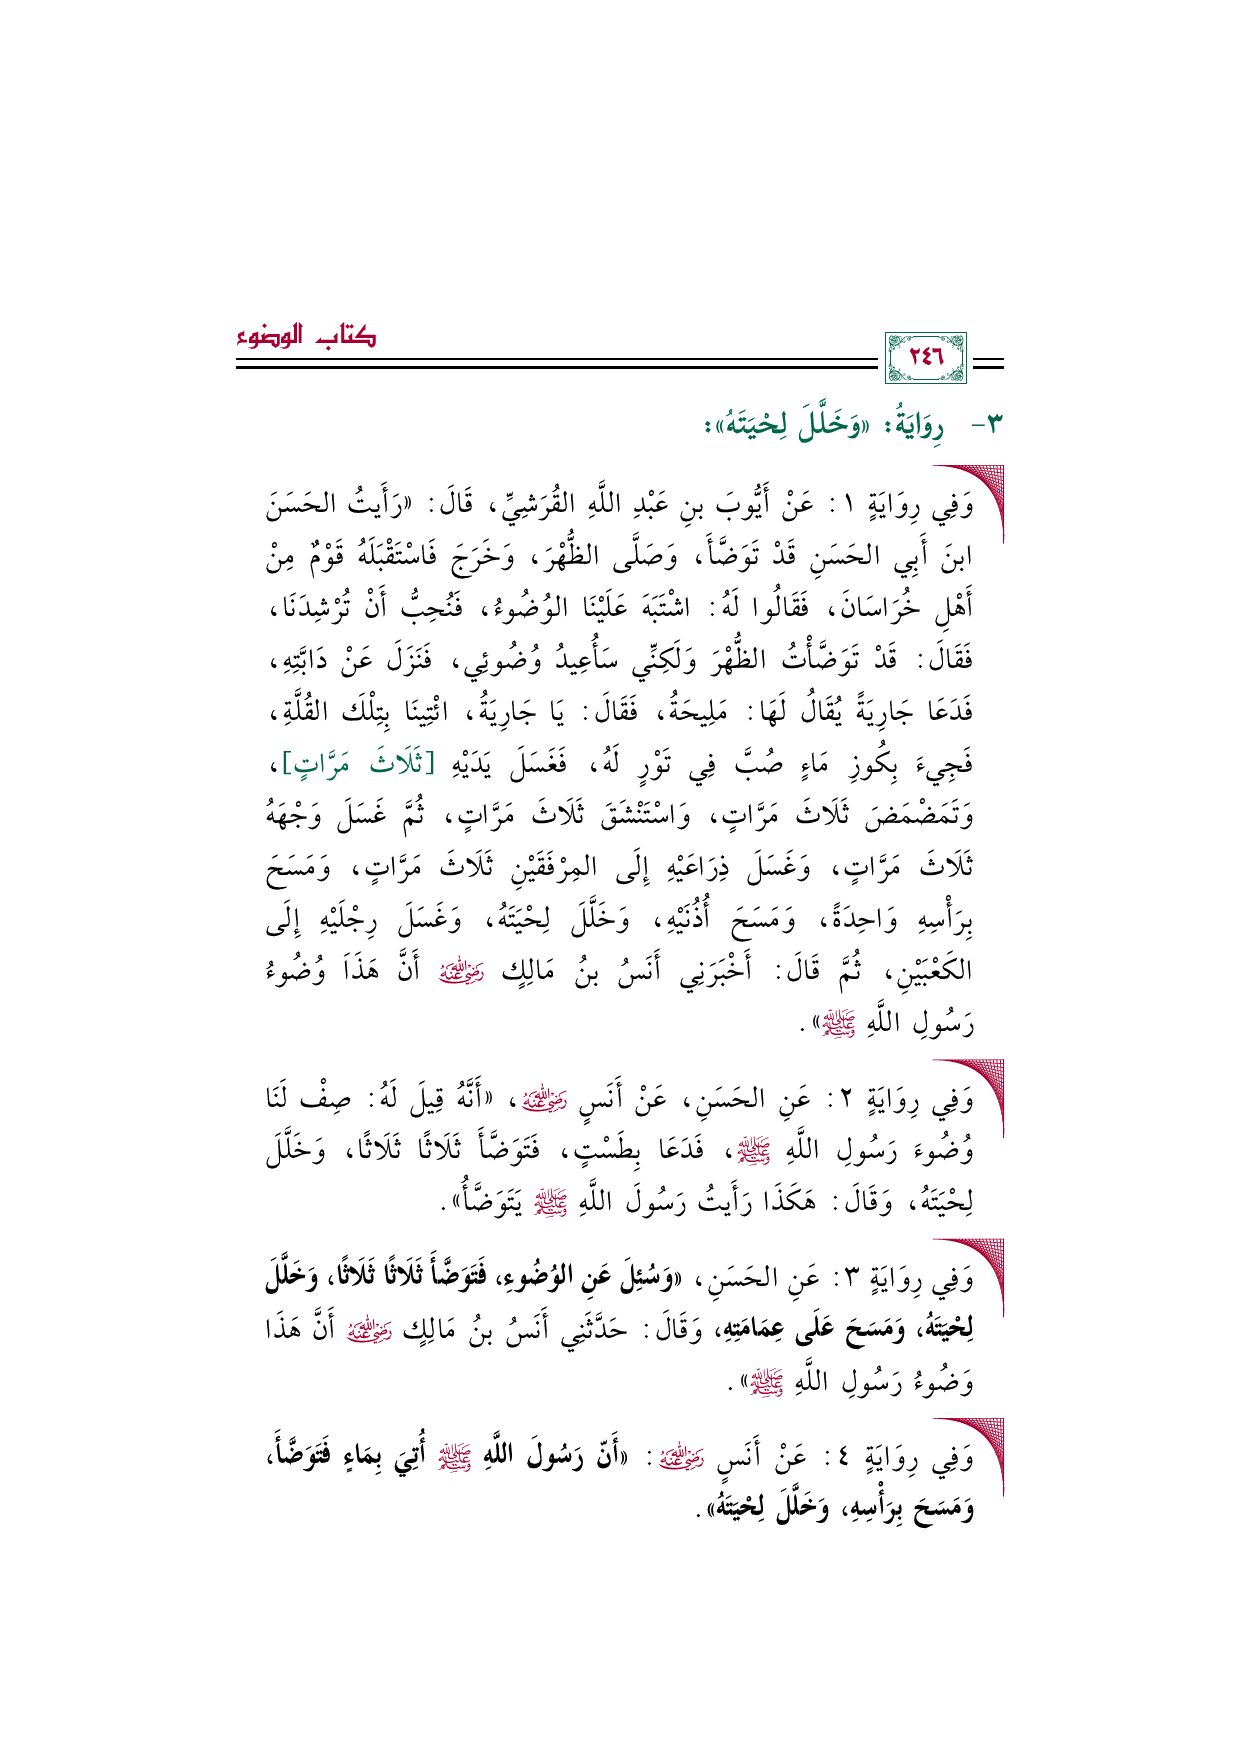 كتاب الوضوء
٢٤٦
٣- رِوَايَةُ: «وَخَلَّلَ لِحْيَتَهُ»:
وَفِي رِوَايَةٍ ١: عَنْ أَيُّوبَ بنِ عَبْدِ اللَّهِ القُرَشِيِّ، قَالَ: «رَأَيتُ الحَسَنَ
ابنَ أَبِي الحَسَنِ قَدْ تَوَضَّأَ، وَصَلَّى الظُّهْرَ، وَخَرَجَ فَاسْتَقْبَلَهُ قَوْمٌ مِنْ
أَهْلِ خُرَاسَانَ، فَقَالُوا لَهُ: اشْتَبَهَ عَلَيْنَا الوُضُوءُ، فَنُحِبُّ أَنْ تُرْشِدَنَا،
فَقَالَ: قَدْ تَوَضَّأْتُ الظُّهْرَ وَلَكِنِّي سَأُعِيدُ وُضُوئِي، فَنَزَلَ عَنْ دَابَّتِهِ،
فَدَعَا جَارِيَةً يُقَالُ لَهَا: مَلِيحَةُ، فَقَالَ: يَا جَارِيَةُ، ائْتِينَا بِتِلْكَ القُلَّةِ،
فَجِيءَ بِكُوزِ مَاءٍ صُبَّ فِي تَوْرٍ لَهُ، فَغَسَلَ يَدَيْهِ [ثَلَاثَ مَرَّاتٍ]،
وَتَمَضْمَضَ ثَلَاثَ مَرَّاتٍ، وَاسْتَنْشَقَ ثَلَاثَ مَرَّاتٍ، ثُمَّ غَسَلَ وَجْهَهُ
ثَلَاثَ مَرَّاتٍ، وَغَسَلَ ذِرَاعَيْهِ إِلَى المِرْفَقَيْنِ ثَلَاثَ مَرَّاتٍ، وَمَسَحَ
بِرَأْسِهِ وَاحِدَةً، وَمَسَحَ أُذُنَيْهِ، وَخَلَّلَ لِحْيَتَهُ، وَغَسَلَ رِجْلَيْهِ إِلَى
الكَعْبَيْنِ، ثُمَّ قَالَ: أَخْبَرَنِي أَنَسُ بنُ مَالِكٍ رَضِيَ اللَّهُ عَنْهُ أَنَّ هَذَاَ وُضُوءُ
رَسُولِ اللَّهِ ﷺ».
وَفِي رِوَايَةٍ ٢: عَنِ الحَسَنِ، عَنْ أَنَسٍ رَضِيَ اللَّهُ عَنْهُ، «أَنَّهُ قِيلَ لَهُ: صِفْ لَنَا
وُضُوءَ رَسُولِ اللَّهِ ﷺ، فَدَعَا بِطَسْتٍ، فَتَوَضَّأَ ثَلَاثًا ثَلَاثًا، وَخَلَّلَ
لِحْيَتَهُ، وَقَالَ: هَكَذَا رَأَيتُ رَسُولَ اللَّهِ ﷺ يَتَوَضَّأُ».
وَفِي رِوَايَةٍ ٣: عَنِ الحَسَنِ، «وَسُئِلَ عَنِ الوُضُوءِ، فَتَوَضَّأَ ثَلَاثًا ثَلَاثًا، وَخَلَّلَ
لِحْيَتَهُ، وَمَسَحَ عَلَى عِمَامَتِهِ، وَقَالَ: حَدَّثَنِي أَنَسُ بنُ مَالِكٍ رَضِيَ اللَّهُ عَنْهُ أَنَّ هَذَا
وَضُوءُ رَسُولِ اللَّهِ ﷺ».
وَفِي رِوَايَةٍ ٤: عَنْ أَنَسٍ رَضِيَ اللَّهُ عَنْهُ: «أَنّ رَسُولَ اللَّهِ ﷺ أُتِيَ بِمَاءٍ فَتَوَضَّأَ،
وَمَسَحَ بِرَأْسِهِ، وَخَلَّلَ لِحْيَتَهُ».